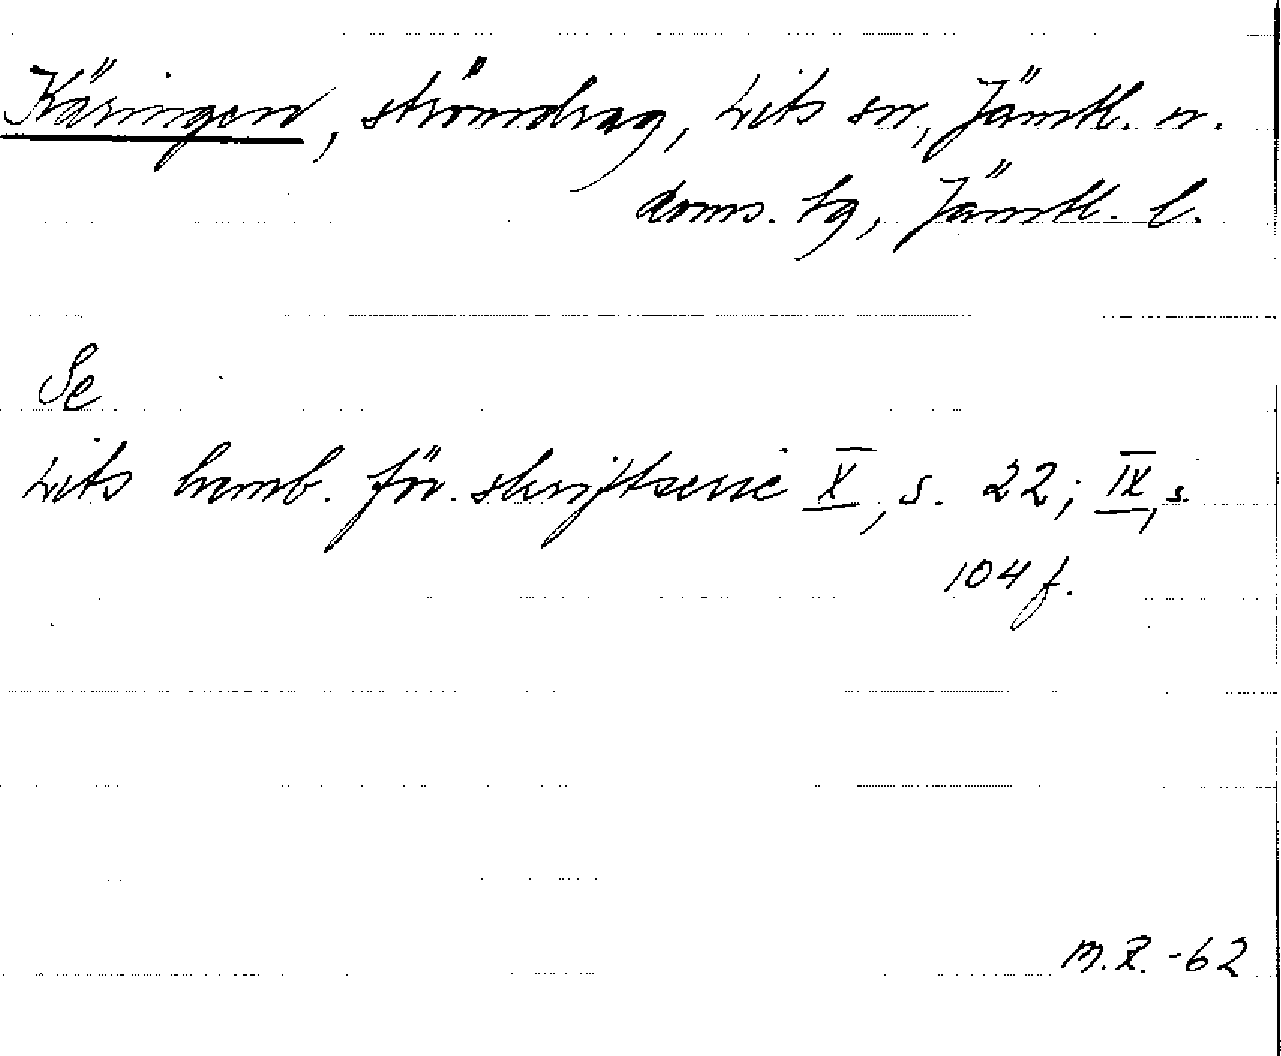 Käringen, strömdrag, Lits sn, Jämtl. n.
doms. tg, Jämtl. l.
Se
Lits hemb. för. skriftserie X, s. 22; IX, s.
104 f.
M.R. -62